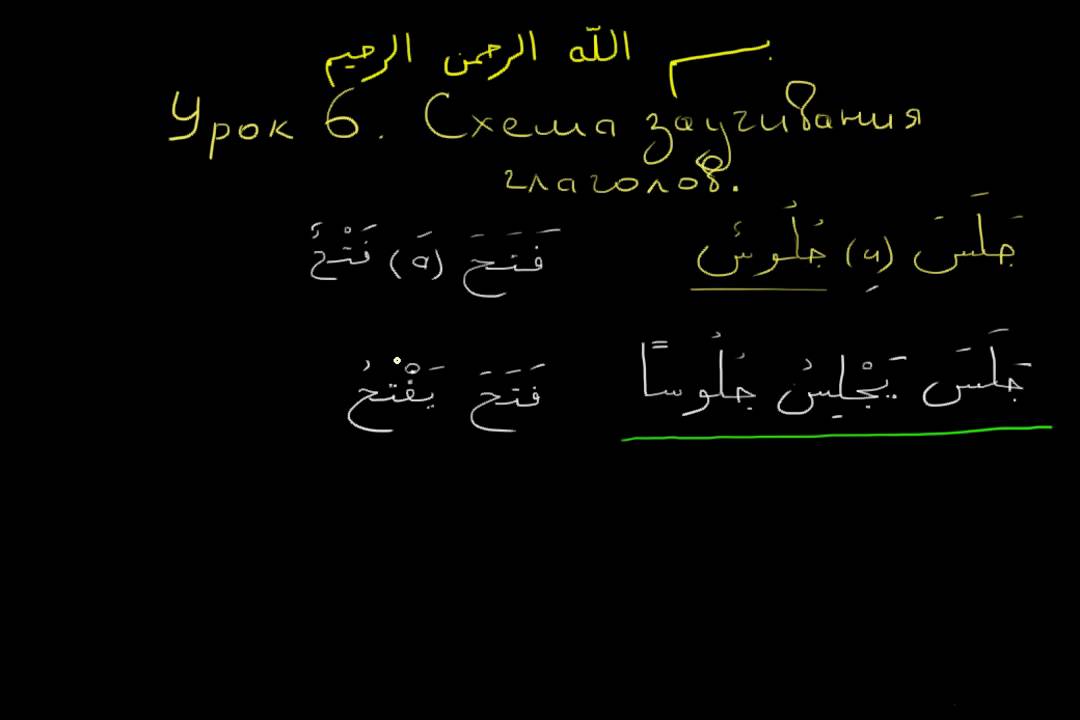 بسم الله الرحمن الرحيم
Урок 6. Схема заучивания
глаголов.
جَلَسَ (и) جُلُوسٌ
فَتَحَ (а) فَتْحٌ
جَلَسَ يَجْلِسُ جُلُوسًا
فَتَحَ يَفْتَحُ